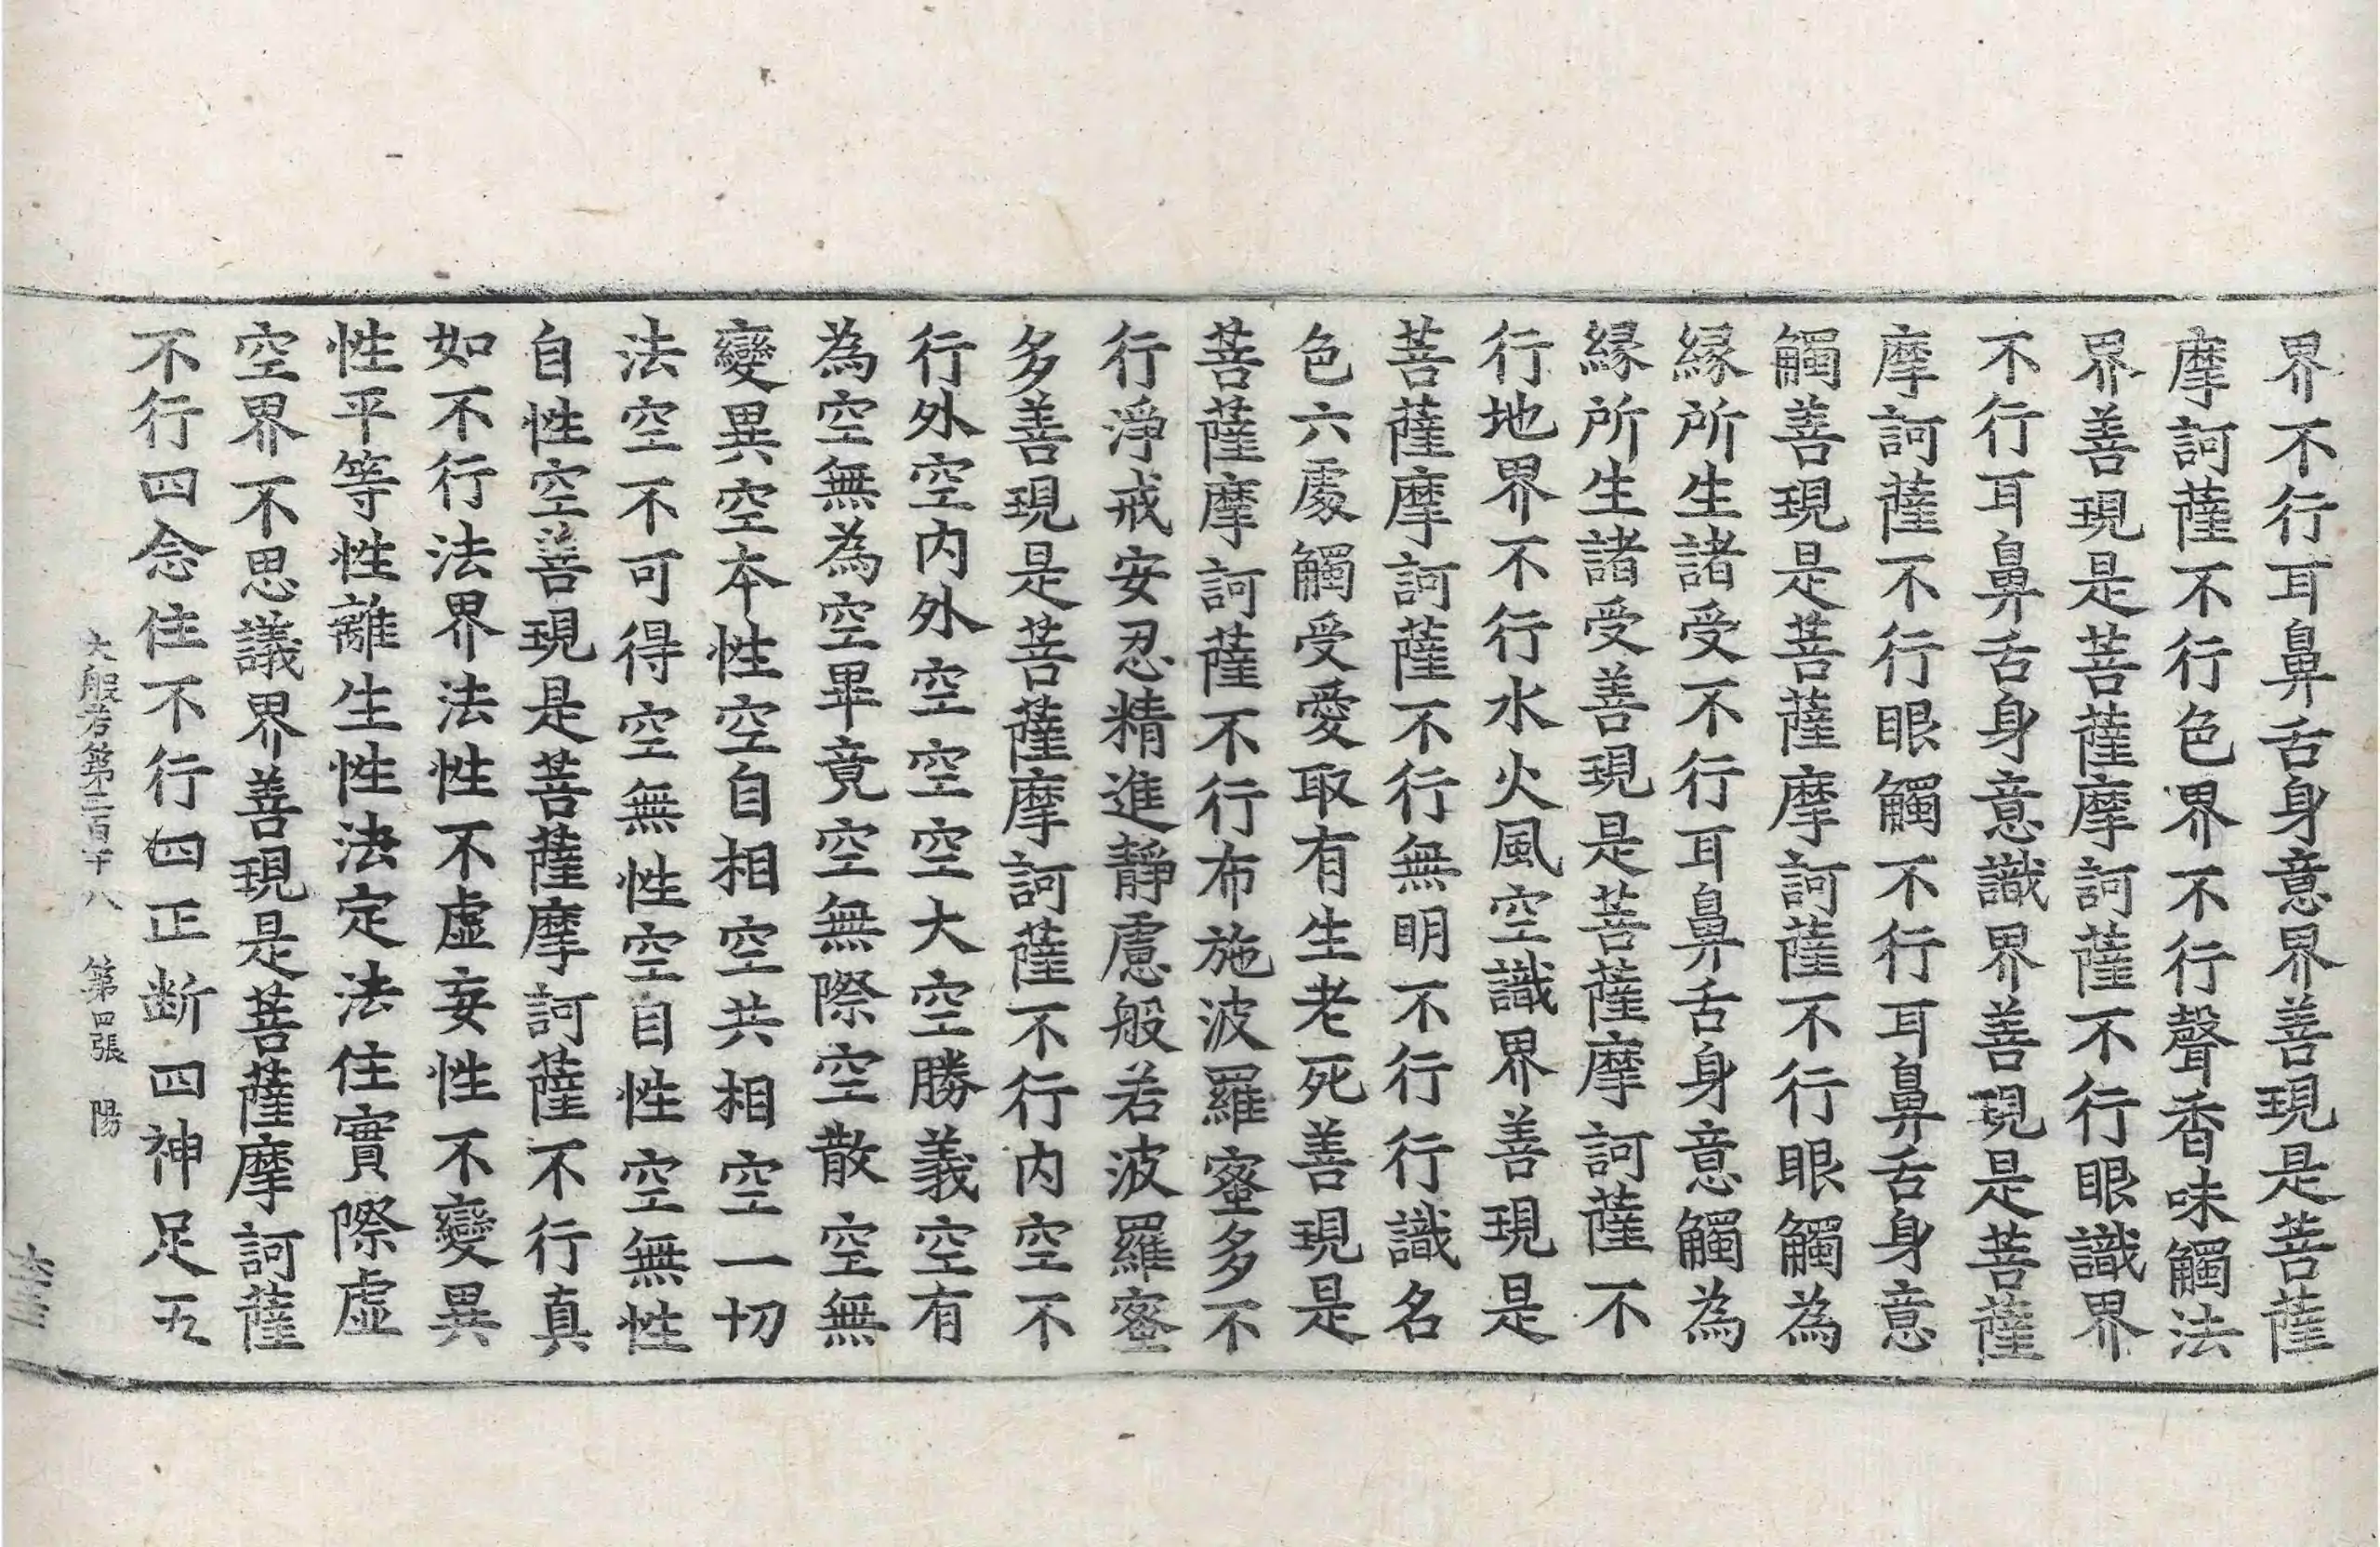 界不行耳鼻舌身意界善現是菩薩
摩訶薩不行色界不行聲香味觸法
界善現是菩薩摩訶薩不行眼識界
不行耳鼻舌身意識界善現是菩薩
摩訶薩不行眼觸不行耳鼻舌身意
觸善現是菩薩摩訶薩不行眼觸為
緣所生諸受不行耳鼻舌身意觸為
緣所生諸受善現是菩薩摩訶薩不
行地界不行水火風空識界善現是
菩薩摩訶薩不行無明不行行識名
色六處觸受愛取有生老死善現是
菩薩摩訶薩不行布施波羅蜜多不
行淨戒安忍精進靜慮般若波羅蜜
多善現是菩薩摩訶薩不行內空不
行外空內外空空空大空勝義空有
為空無為空畢竟空無際空散空無
變異空本性空自相空共相空一切
法空不可得空無性空自性空無性
自性空善現是菩薩摩訶薩不行真
如不行法界法性不虛妄性不變異
性平等性離生性法定法住實際虛
空界不思議界善現是菩薩摩訶薩
不行四念住不行四正断四神足五
大般若第三百八 第四張 陽